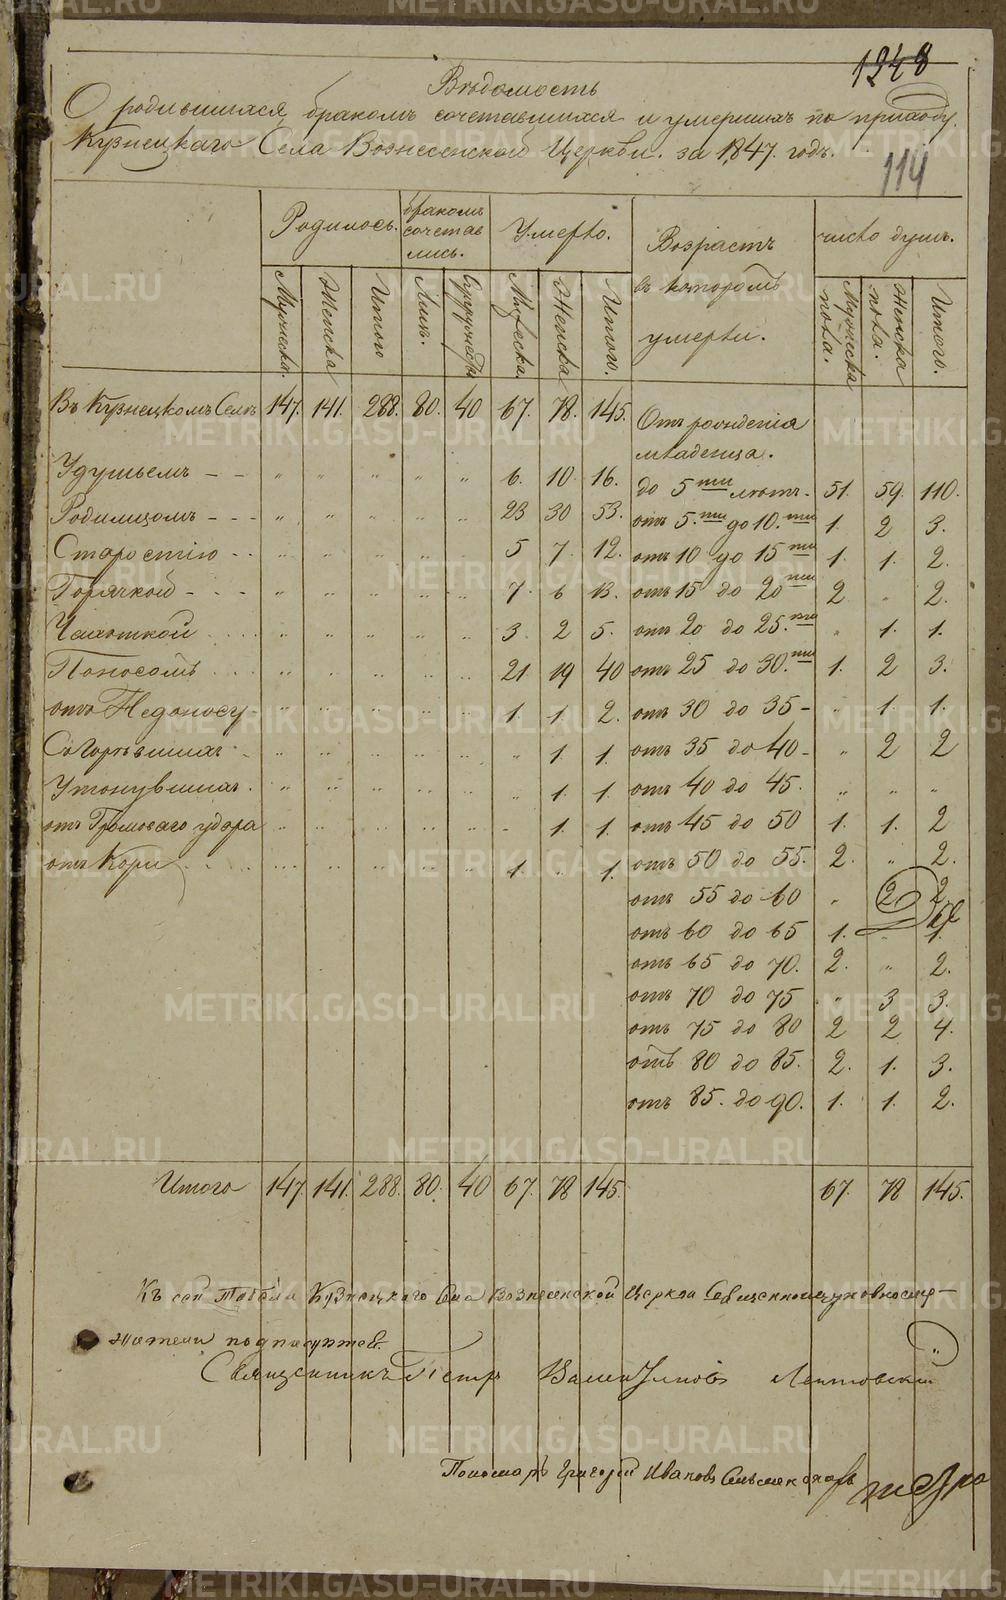 1248
Вѣдомость
О родившихся, бракомъ сочетавшихся и умершихъ по приходу
Кузнецкаго Села Вознесенской Церкви. за 1847. годъ.
114
Родилось. бракомъ сочетав лись. Умерло. Возрастъ въ которомъ умерли. число душъ.
Мужеска. Женска Итого Лицъ. Супружествъ Мужеска. Женска Итого. Мужеска пола. Женска пола. Итого.
Въ Кузнецкомъ Селѣ 147. 141. 288. 80. 40 67. 78. 145. Отъ рожденія
младенца.
Удушьемъ - - " " " " " 6. 10 16. до 5ти лѣтъ. 51. 59. 110.
Родимцомъ - - - " " " " " 23 30 53. отъ 5.ти до 10.ти 1. 2 3.
Старостію - - " " " " " 5 7. 12. отъ 10 до 15ти 1. 1. 2.
Горячкой - - - " " " " " 7. 6 13. отъ 15 до 20ти 2. " 2.
Чахоткой . . . . " " " " " 3. 2 5. отъ 20 до 25.ти " 1. 1.
Поносомъ . . . " " " " " 21. 19 40 отъ 25 до 30.ти 1. 2 3.
отъ Недоносу - " " " " " 1. 1. 2. отъ 30 до 35 - " 1. 1.
Сгорѣвшихъ - " " " " " " 1. 1. отъ 35 до 40 - " 2 2
Утонувшихъ. " " " " " " 1. 1. отъ 40 до 45. " " "
отъ Громоваго удара " " " " " " 1. 1. отъ 45 до 50 1. 1. 2
отъ Кори . . . " " " " " 1. " 1. отъ 50 до 55. 2. " 2.
отъ 55 до 60 " 2 2
отъ 60 до 65 1. " 1.
отъ 65 до 70. 2. " 2.
отъ 70 до 75 " 3 3.
отъ 75 до 80 2 2 4.
отъ 80 до 85. 2. 1. 3.
отъ 85. до 90. 1. 1. 2.
Итого 147. 141. 288. 80. 40 67. 78 145. 67. 78 145.
Къ сей Кузнецкаго Села Вознесенской Церкви
подписуются.
Священникъ Петръ
Пономарь Григорій Ивановъ
METRIKI.GASO-URAL.RU